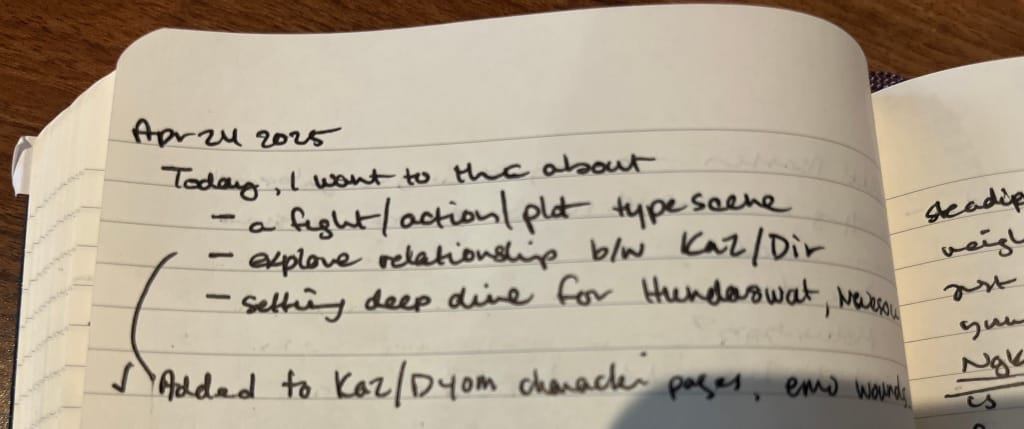 Apr 24 2025
Today, I want to thc about
- a fight/action/plot type scene
- explore relationship b/w Kaz/Dir
- setting deep dive for Hundaswat,
√ Added to Kaz/Dyom character pages, emo wounds
weigh
just
Ngk
is